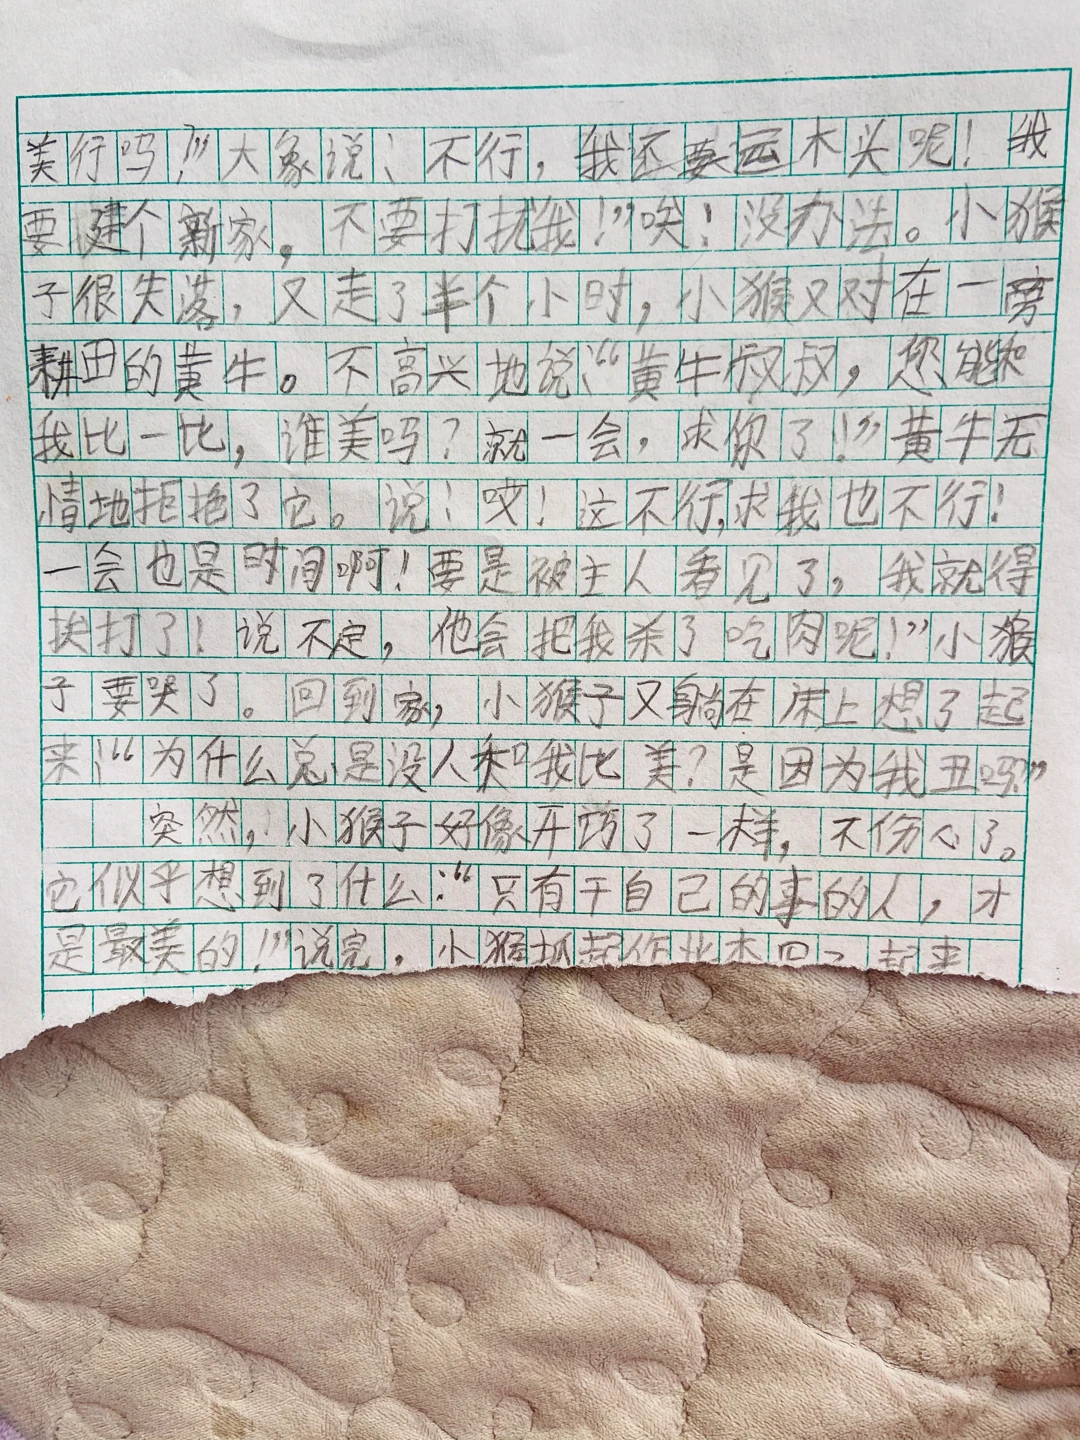 美行吗？”大象说：不行，我还要运木头呢！我
要建个新家，不要打扰我！”唉！没办法。小猴
子很失落，又走了半个小时，小猴又对在一旁
耕田的黄牛。不高兴地说：“黄牛叔叔，您能和
我比一比，谁美吗？就一会，求你了！”黄牛无
情地拒绝了它。说：哎！这不行，求我也不行！
一会也是时间啊！要是被主人看见了，我就得
挨打了！说不定，他会把我杀了吃肉呢！”小猴
子要哭了。回到家，小猴子又躺在床上想了起
来：“为什么总是没人和我比美？是因为我丑吗？”
突然，小猴子好像开窍了一样，不伤心了。
它似乎想到了什么：“只有干自己的事的人，才
是最美的！”说完，小猴抓起作业本回了起来